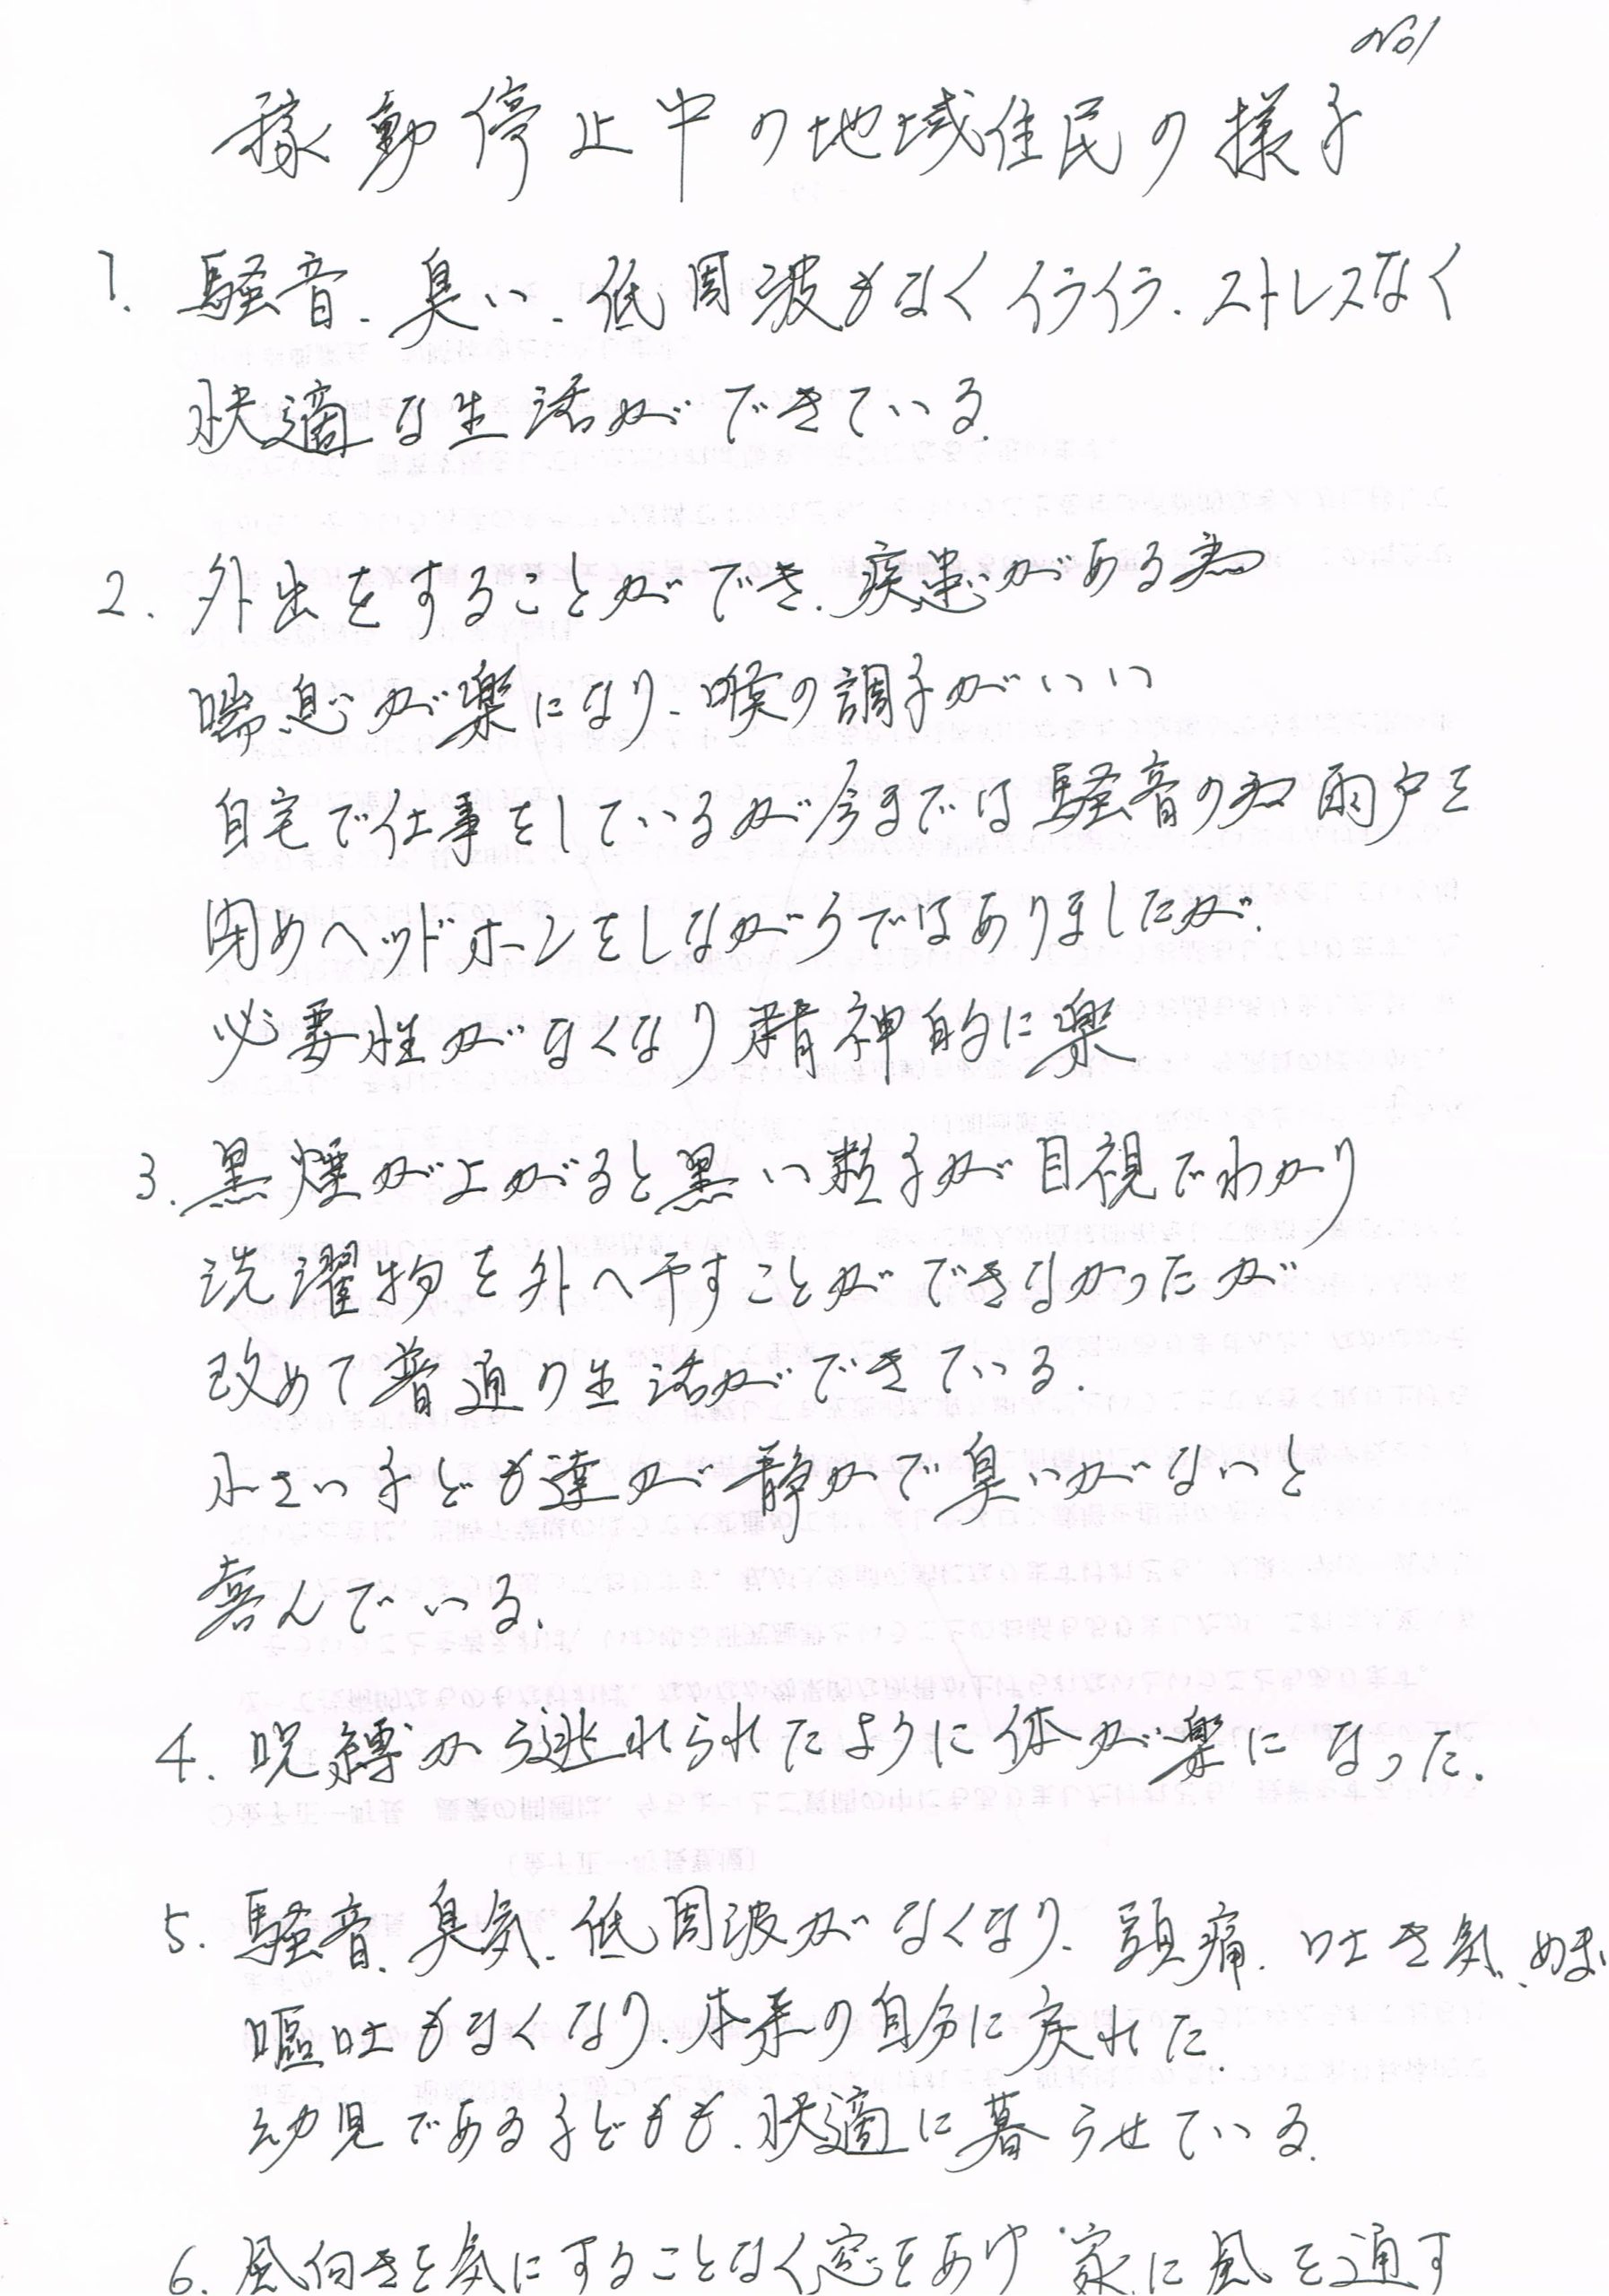 No1
稼動停止中の地域住民の様子
1. 騒音、臭い、低周波もなくイライラ、ストレスなく
快適な生活ができている。
2. 外出をすることができ、疾患がある為
喘息が楽になり、喉の調子がいい
自宅で仕事をしているが今までは騒音の為雨戸を
閉めヘッドホンをしながらではありましたが、
必要性がなくなり精神的に楽
3. 黒煙が上がると黒い粒子が目視でわかり
洗濯物を外へ干すことができなかったが
改めて普通の生活ができている。
小さい子ども達が静かで臭いがないと
喜んでいる。
4. 呪縛から逃れられたように体が楽になった。
5. 騒音、臭気、低周波がなくなり、頭痛、吐き気、めま
嘔吐もなくなり、本来の自分に戻れた。
幼児である子どもも、快適に暮らせている。
6. 風向きを気にすることなく窓をあけ家に風を通す